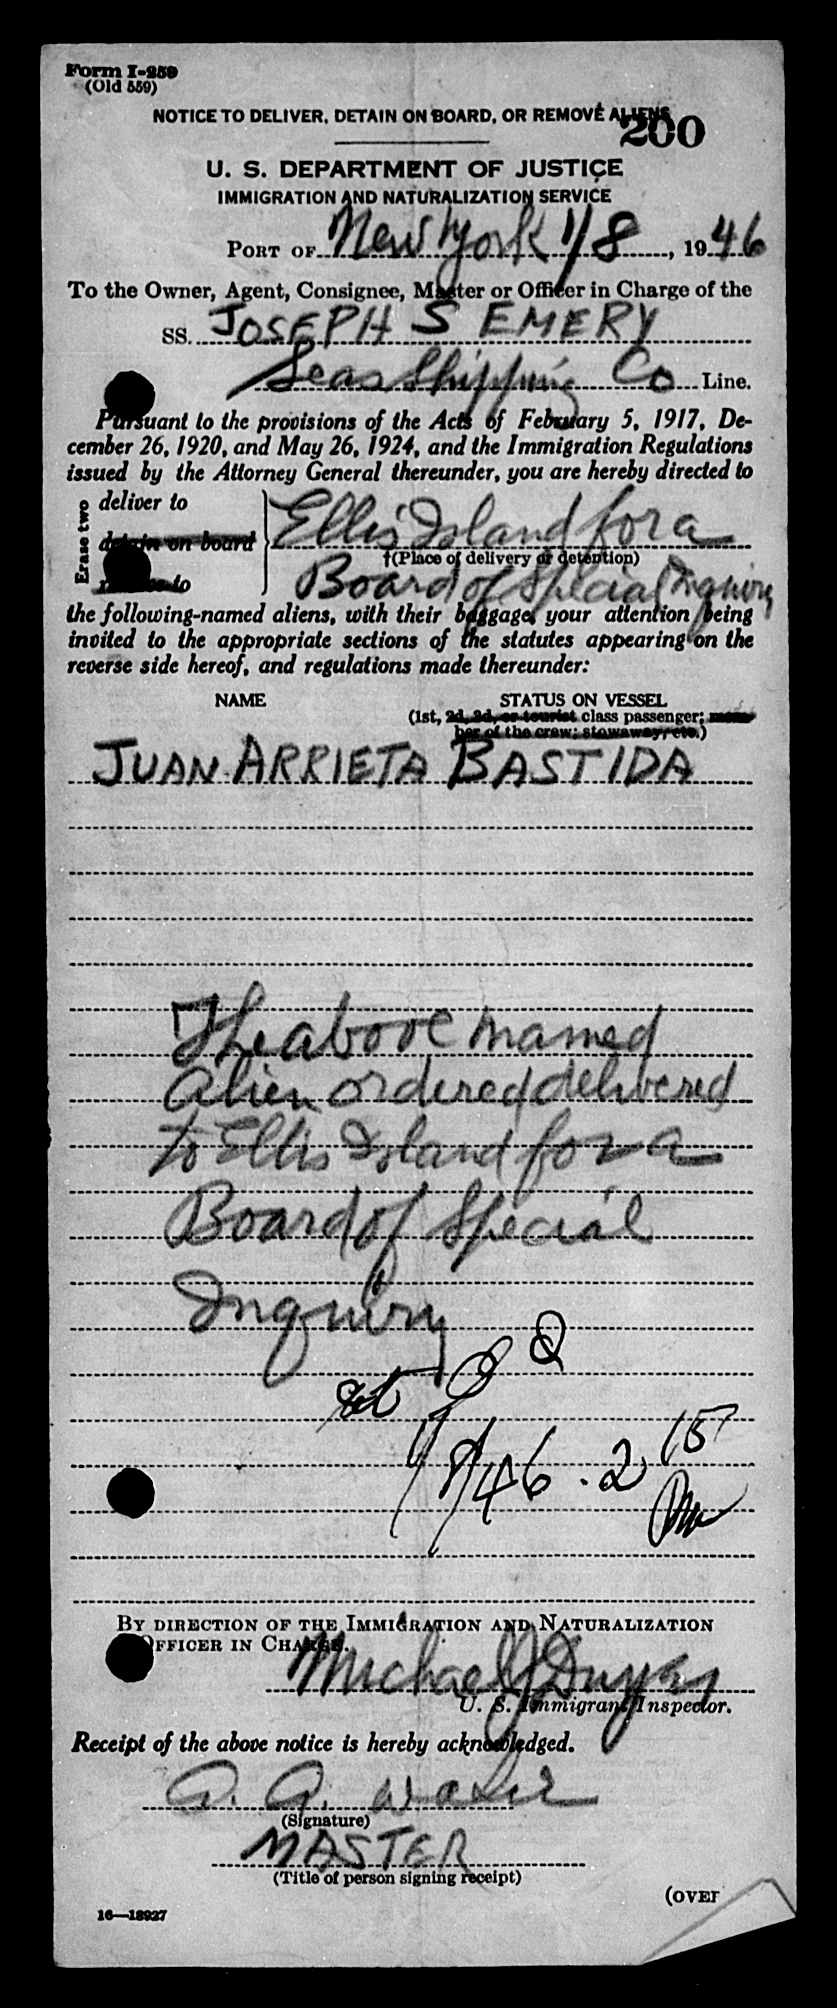 Form I-259
(Old 559)
NOTICE TO DELIVER, DETAIN ON BOARD, OR REMOVE ALIENS
200
U. S. DEPARTMENT OF JUSTICE
IMMIGRATION AND NATURALIZATION SERVICE
PORT OF New York 1/8, 1946
To the Owner, Agent, Consignee, Master or Officer in Charge of the
SS. JOSEPH S EMERY
Seas Shipping Co Line.
Pursuant to the provisions of the Acts of February 5, 1917, De-
cember 26, 1920, and May 26, 1924, and the Immigration Regulations
issued by the Attorney General thereunder, you are hereby directed to
Erase two
deliver to
detain on board
to
Ellis Island for a
†(Place of delivery or detention)
Board of Special Inquiry
the following-named aliens, with their baggage, your attention being
invited to the appropriate sections of the statutes appearing on the
reverse side hereof, and regulations made thereunder:
NAME STATUS ON VESSEL
(1st, 2d, 3d, or tourist class passenger; mem-
ber of the crew; stowaway, etc.)
JUAN ARRIETA BASTIDA
The above named
alien ordered delivered
to Ellis Island for a
Board of Special
Inquiry
1/8/46 . 2 15
BY DIRECTION OF THE IMMIGRATION AND NATURALIZATION
OFFICER IN CHARGE.
Michael J
U. S. Immigrant Inspector.
Receipt of the above notice is hereby acknowledged.
(Signature)
MASTER
(Title of person signing receipt)
(OVER
16—18927